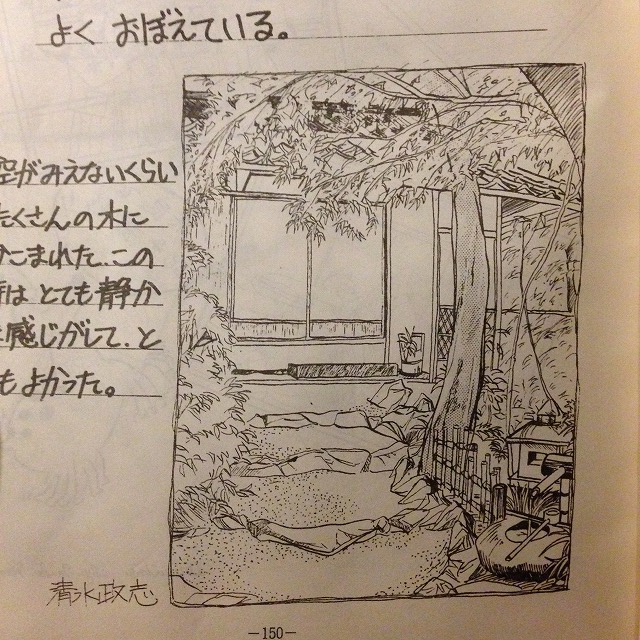 よく おぼえている。
空がみえないくらい
たくさんの木に
かこまれた、この
寺は とても静か
な感じがして、と
もよかった。
清水政志
—150—